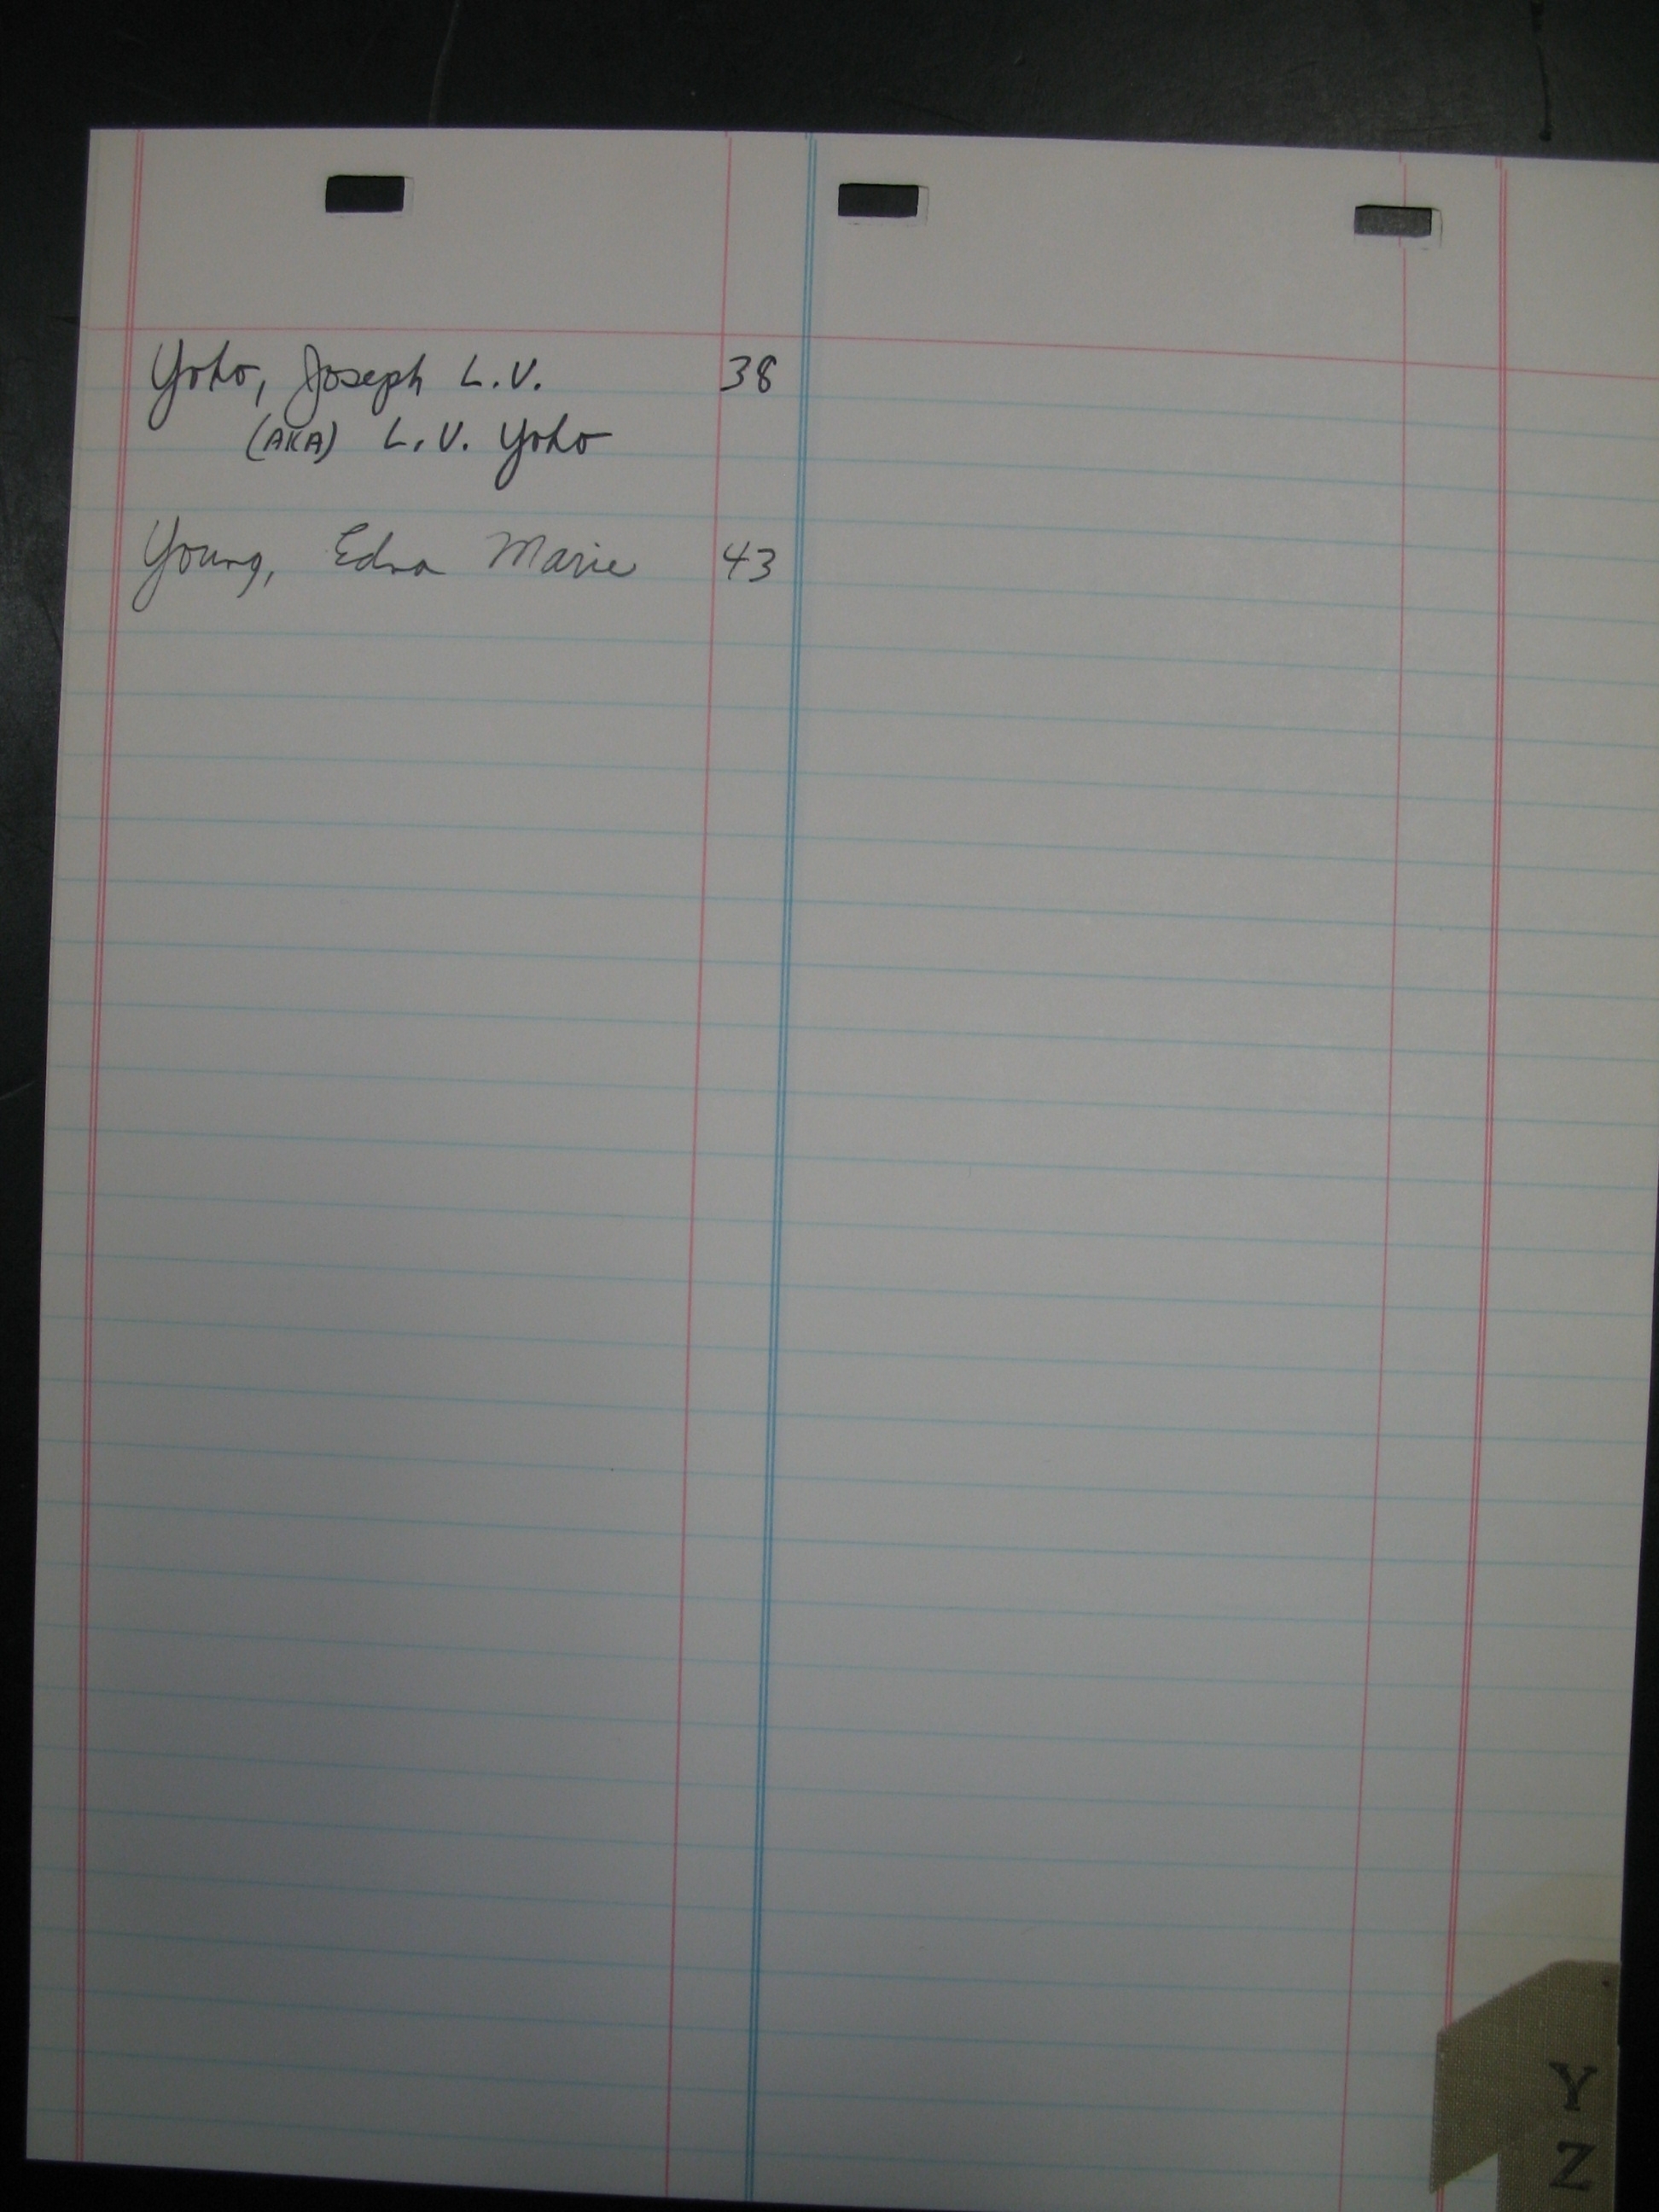 Yoho, Joseph L.V. 38
(AKA) L.V. Yoho
Young, Edna Marie 43
Y
Z